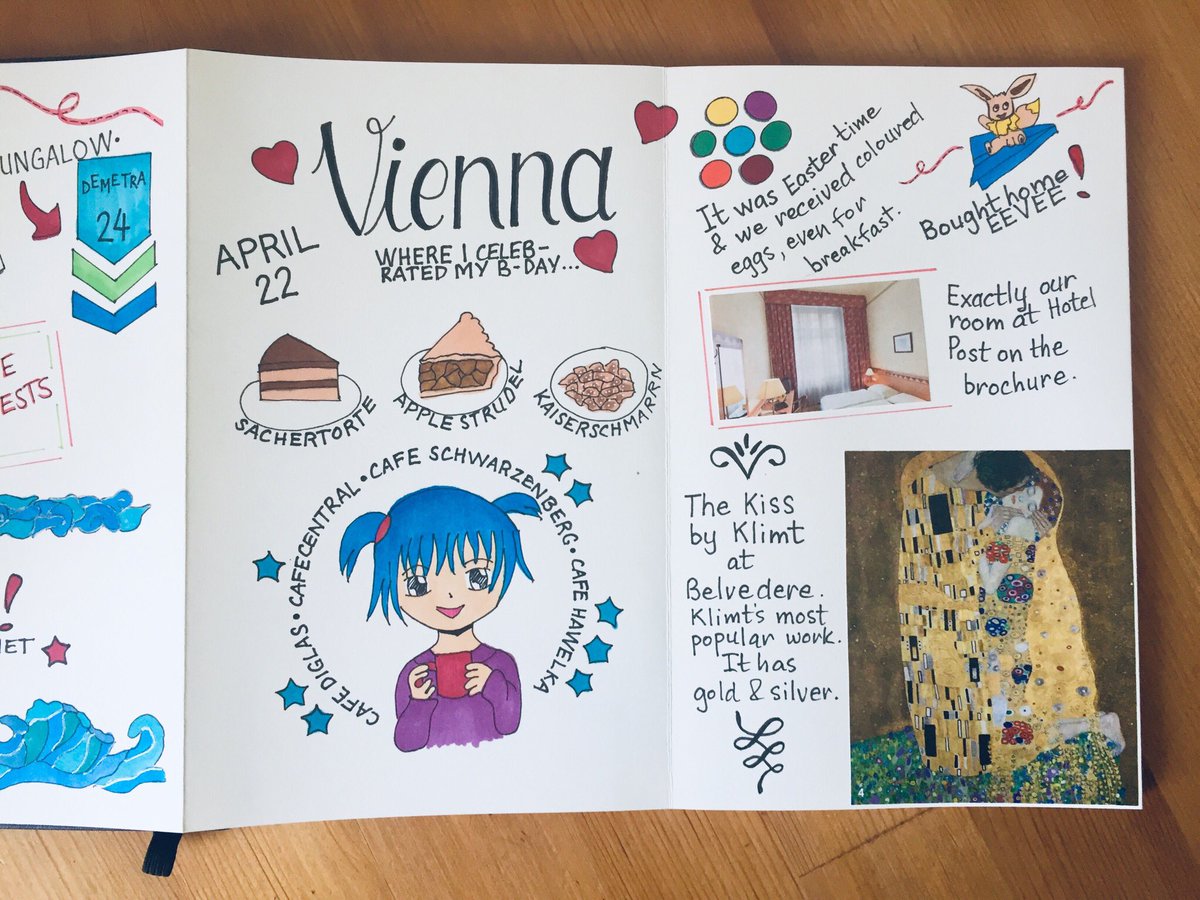 UNGALOW.
DEMETRA
24
E
ESTS
!
ET
Vienna
APRIL
22
WHERE I CELEB-
RATED MY B-DAY...
SACHERTORTE
APPLE STRUDEL
KAISERSCHMARRN
CAFE DIGLAS • CAFECENTRAL • CAFE SCHWARZENBERG • CAFE HAWELKA
It was Easter time
& we received coloured
eggs, even for
breakfast.
Bought home
EEVEE!
Exactly our
room at Hotel
Post on the
brochure.
The Kiss
by Klimt
at
Belvedere.
Klimt's most
popular work.
It has
gold & silver.
4